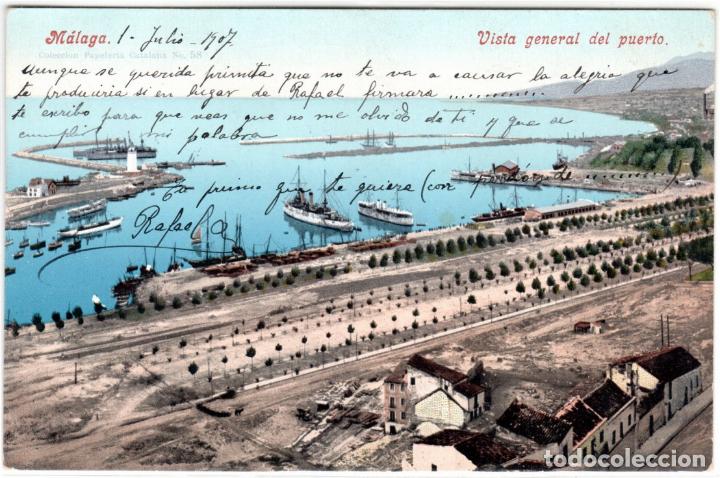 Málaga. 1 - Julio - 1907
Vista general del puerto.
Coleccion Papelería Catalana No. 58
Aunque se querida primita que no te va a causar la alegria que
te produciria si en lugar de Rafael firmara ............
te escribo para que veas que no me olvido de ti y que se
cumplir mi palabra
Tu primo que te quiere (con permiso de .......
Rafael
todocoleccion.net